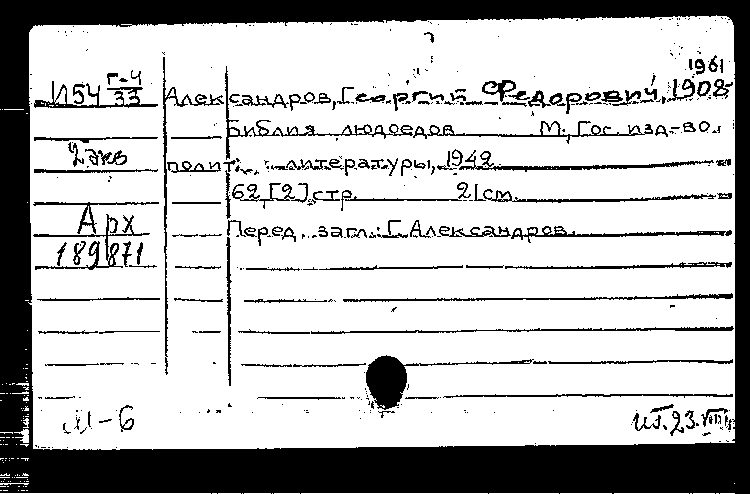 1961
И54 Г-4
33
Александров, Георгий Федорович, 1908-
Библия людоедов М., Гос. изд-во.
2 экз
полит. литературы, 1942
62, [2] стр. 21 см.
Арх
Перед. загл.: Г. Александров.
189871
М-6
ит. 23.VIII